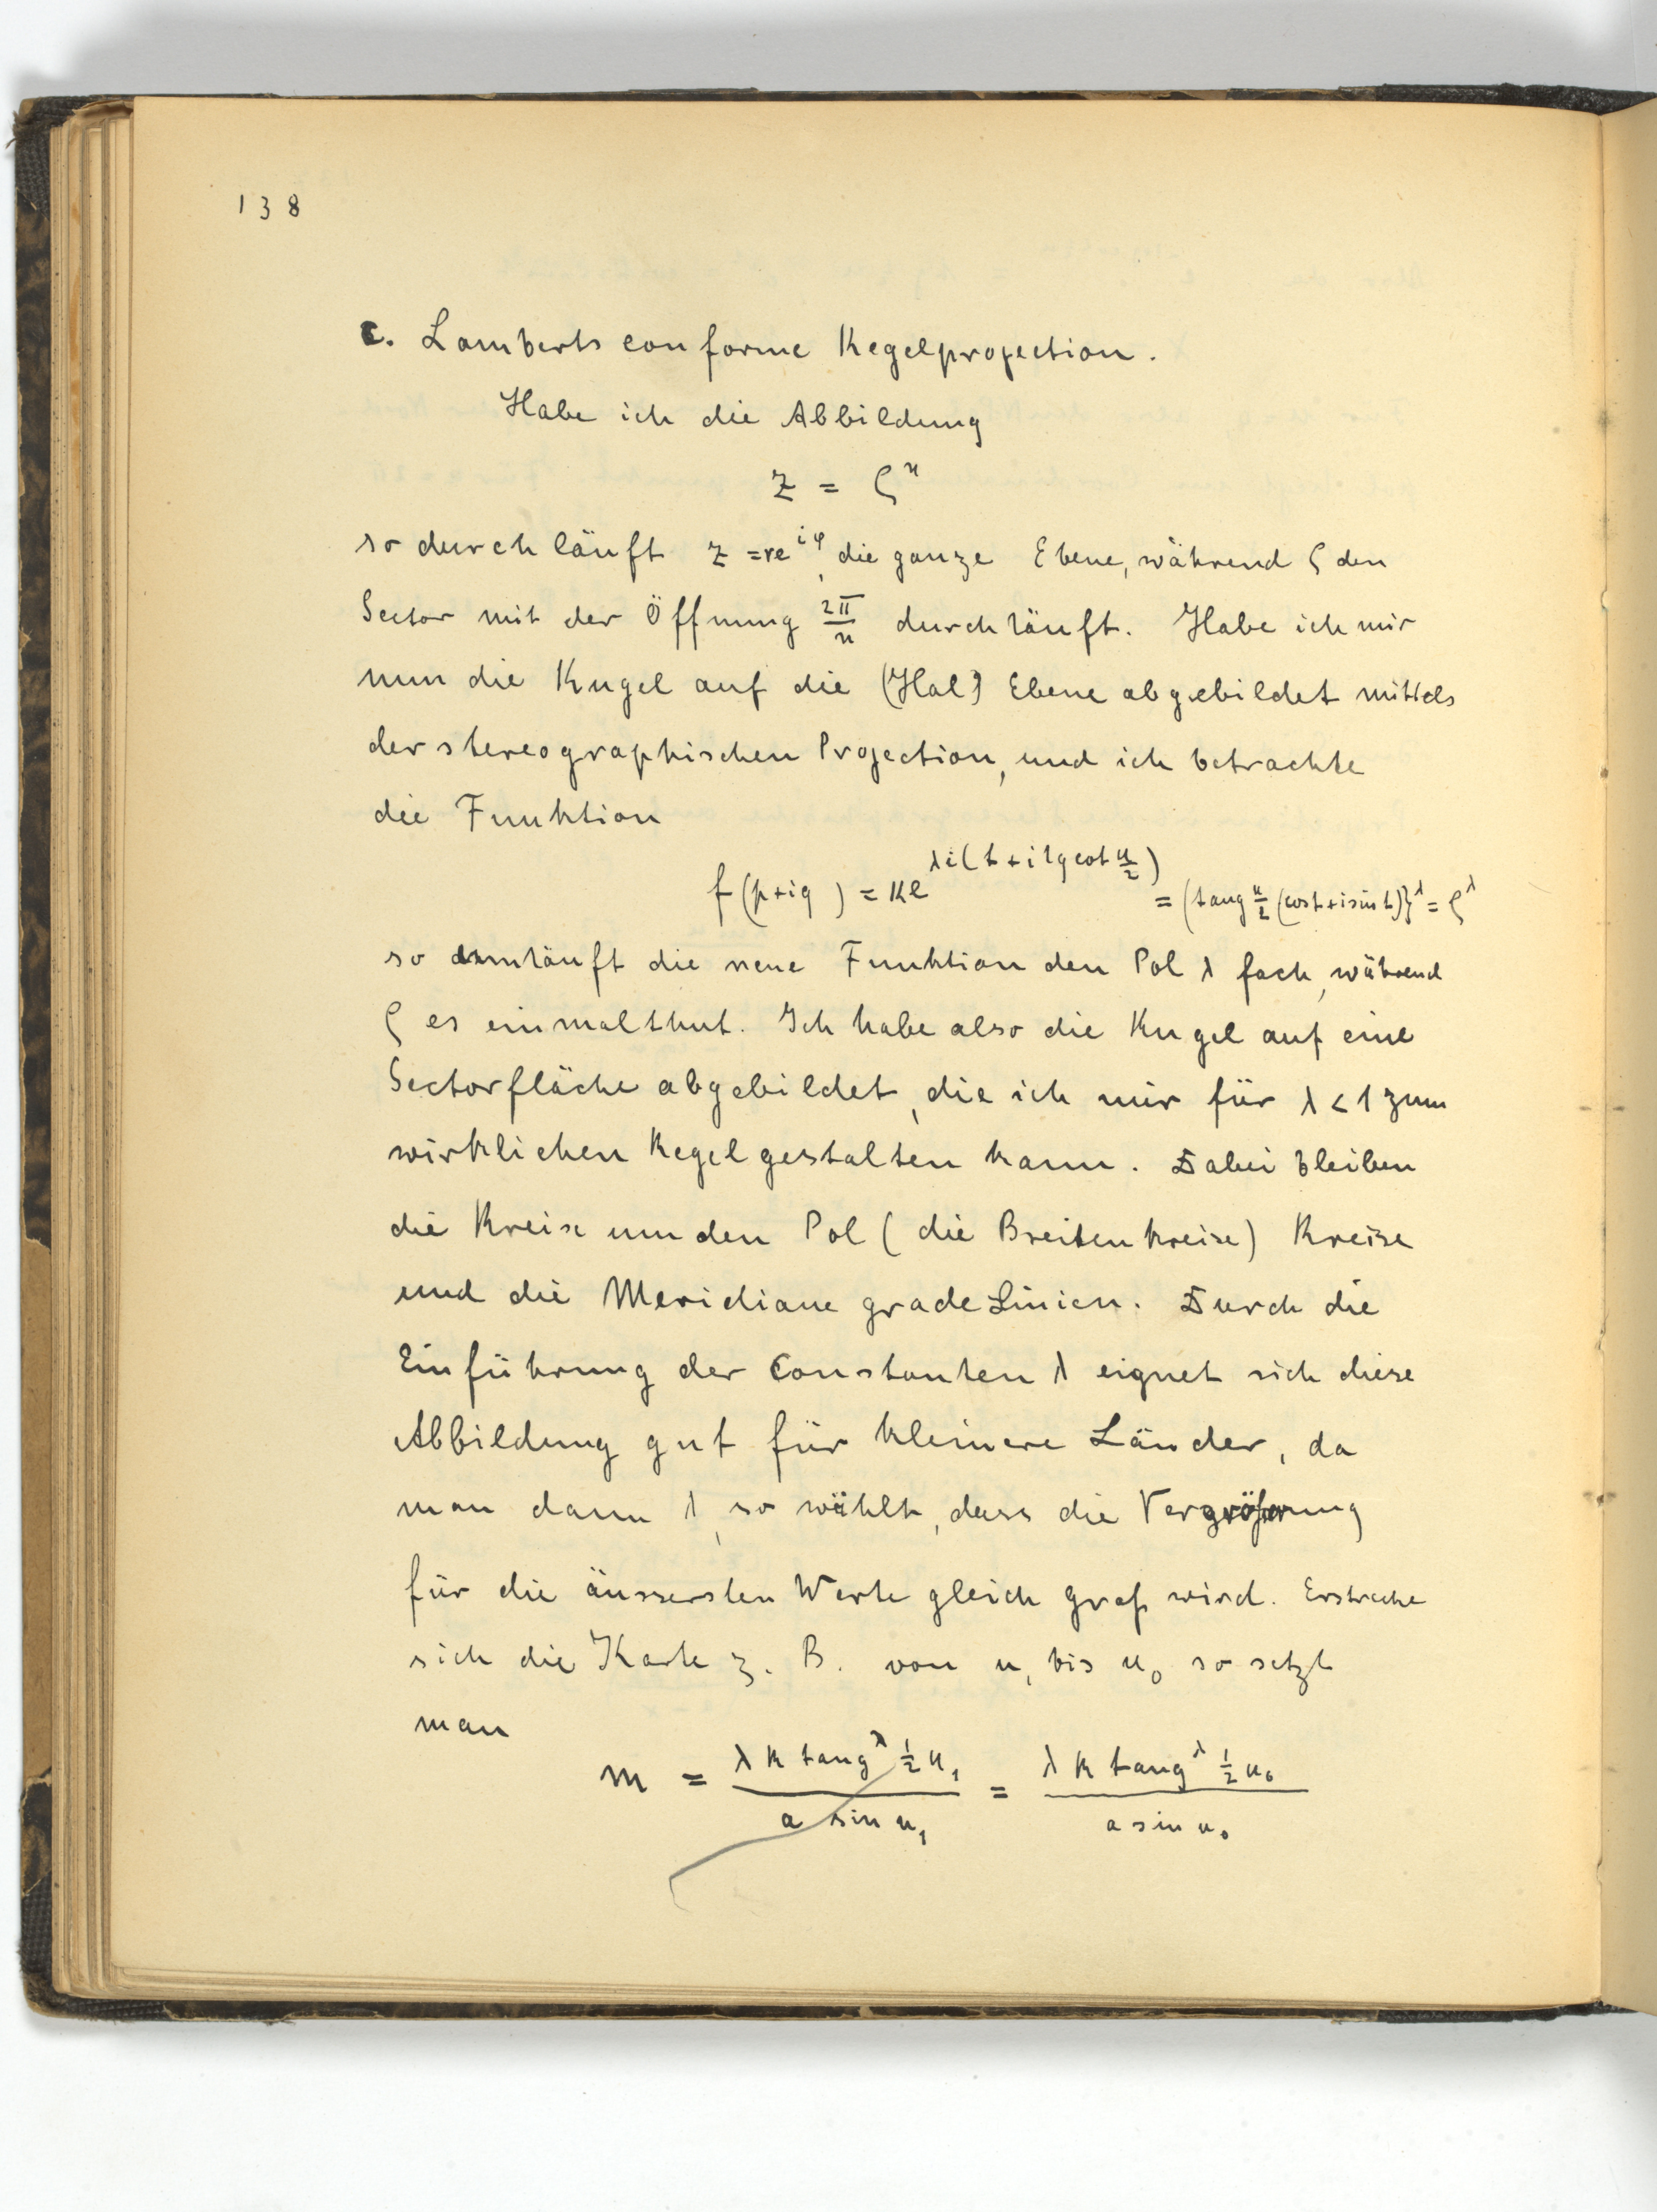 138
c. Lamberts conforme Kegelprojection.
Habe ich die Abbildung
z = ζⁿ
so durchläuft z = re^{iφ}, die ganze Ebene, während ζ den
Sector mit der Öffnung 2π/n durchläuft. Habe ich mir
nun die Kugel auf die (Hal) Ebene abgebildet mittels
der stereographischen Projection, und ich betrachte
die Funktion
f(p+iq) = ke^{λi(t+i lg cot u/2)} = (tang u/2 (cos t + i sin t)}^λ = ζ^λ
so umläuft die neue Funktion den Pol λ fach, während
ζ es einmal thut. Ich habe also die Kugel auf eine
Sectorfläche abgebildet, die ich mir für λ < 1 zum
wirklichen Kegel gestalten kann. Dabei bleiben
die Kreise um den Pol (die Breitenkreise) Kreise
und die Meridiane grade Linien. Durch die
Einführung der Constanten λ eignet sich diese
Abbildung gut für kleinere Länder, da
man dann λ, so wählt, dass die Vergrößerung
für die äussersten Werte gleich groß wird. Erstrecke
sich die Karte z. B. von u₁ bis u₀ so setzt
man
m = λ k tang^λ ½ u₁ / a sin u₁ = λ k tang^λ ½ u₀ / a sin u₀